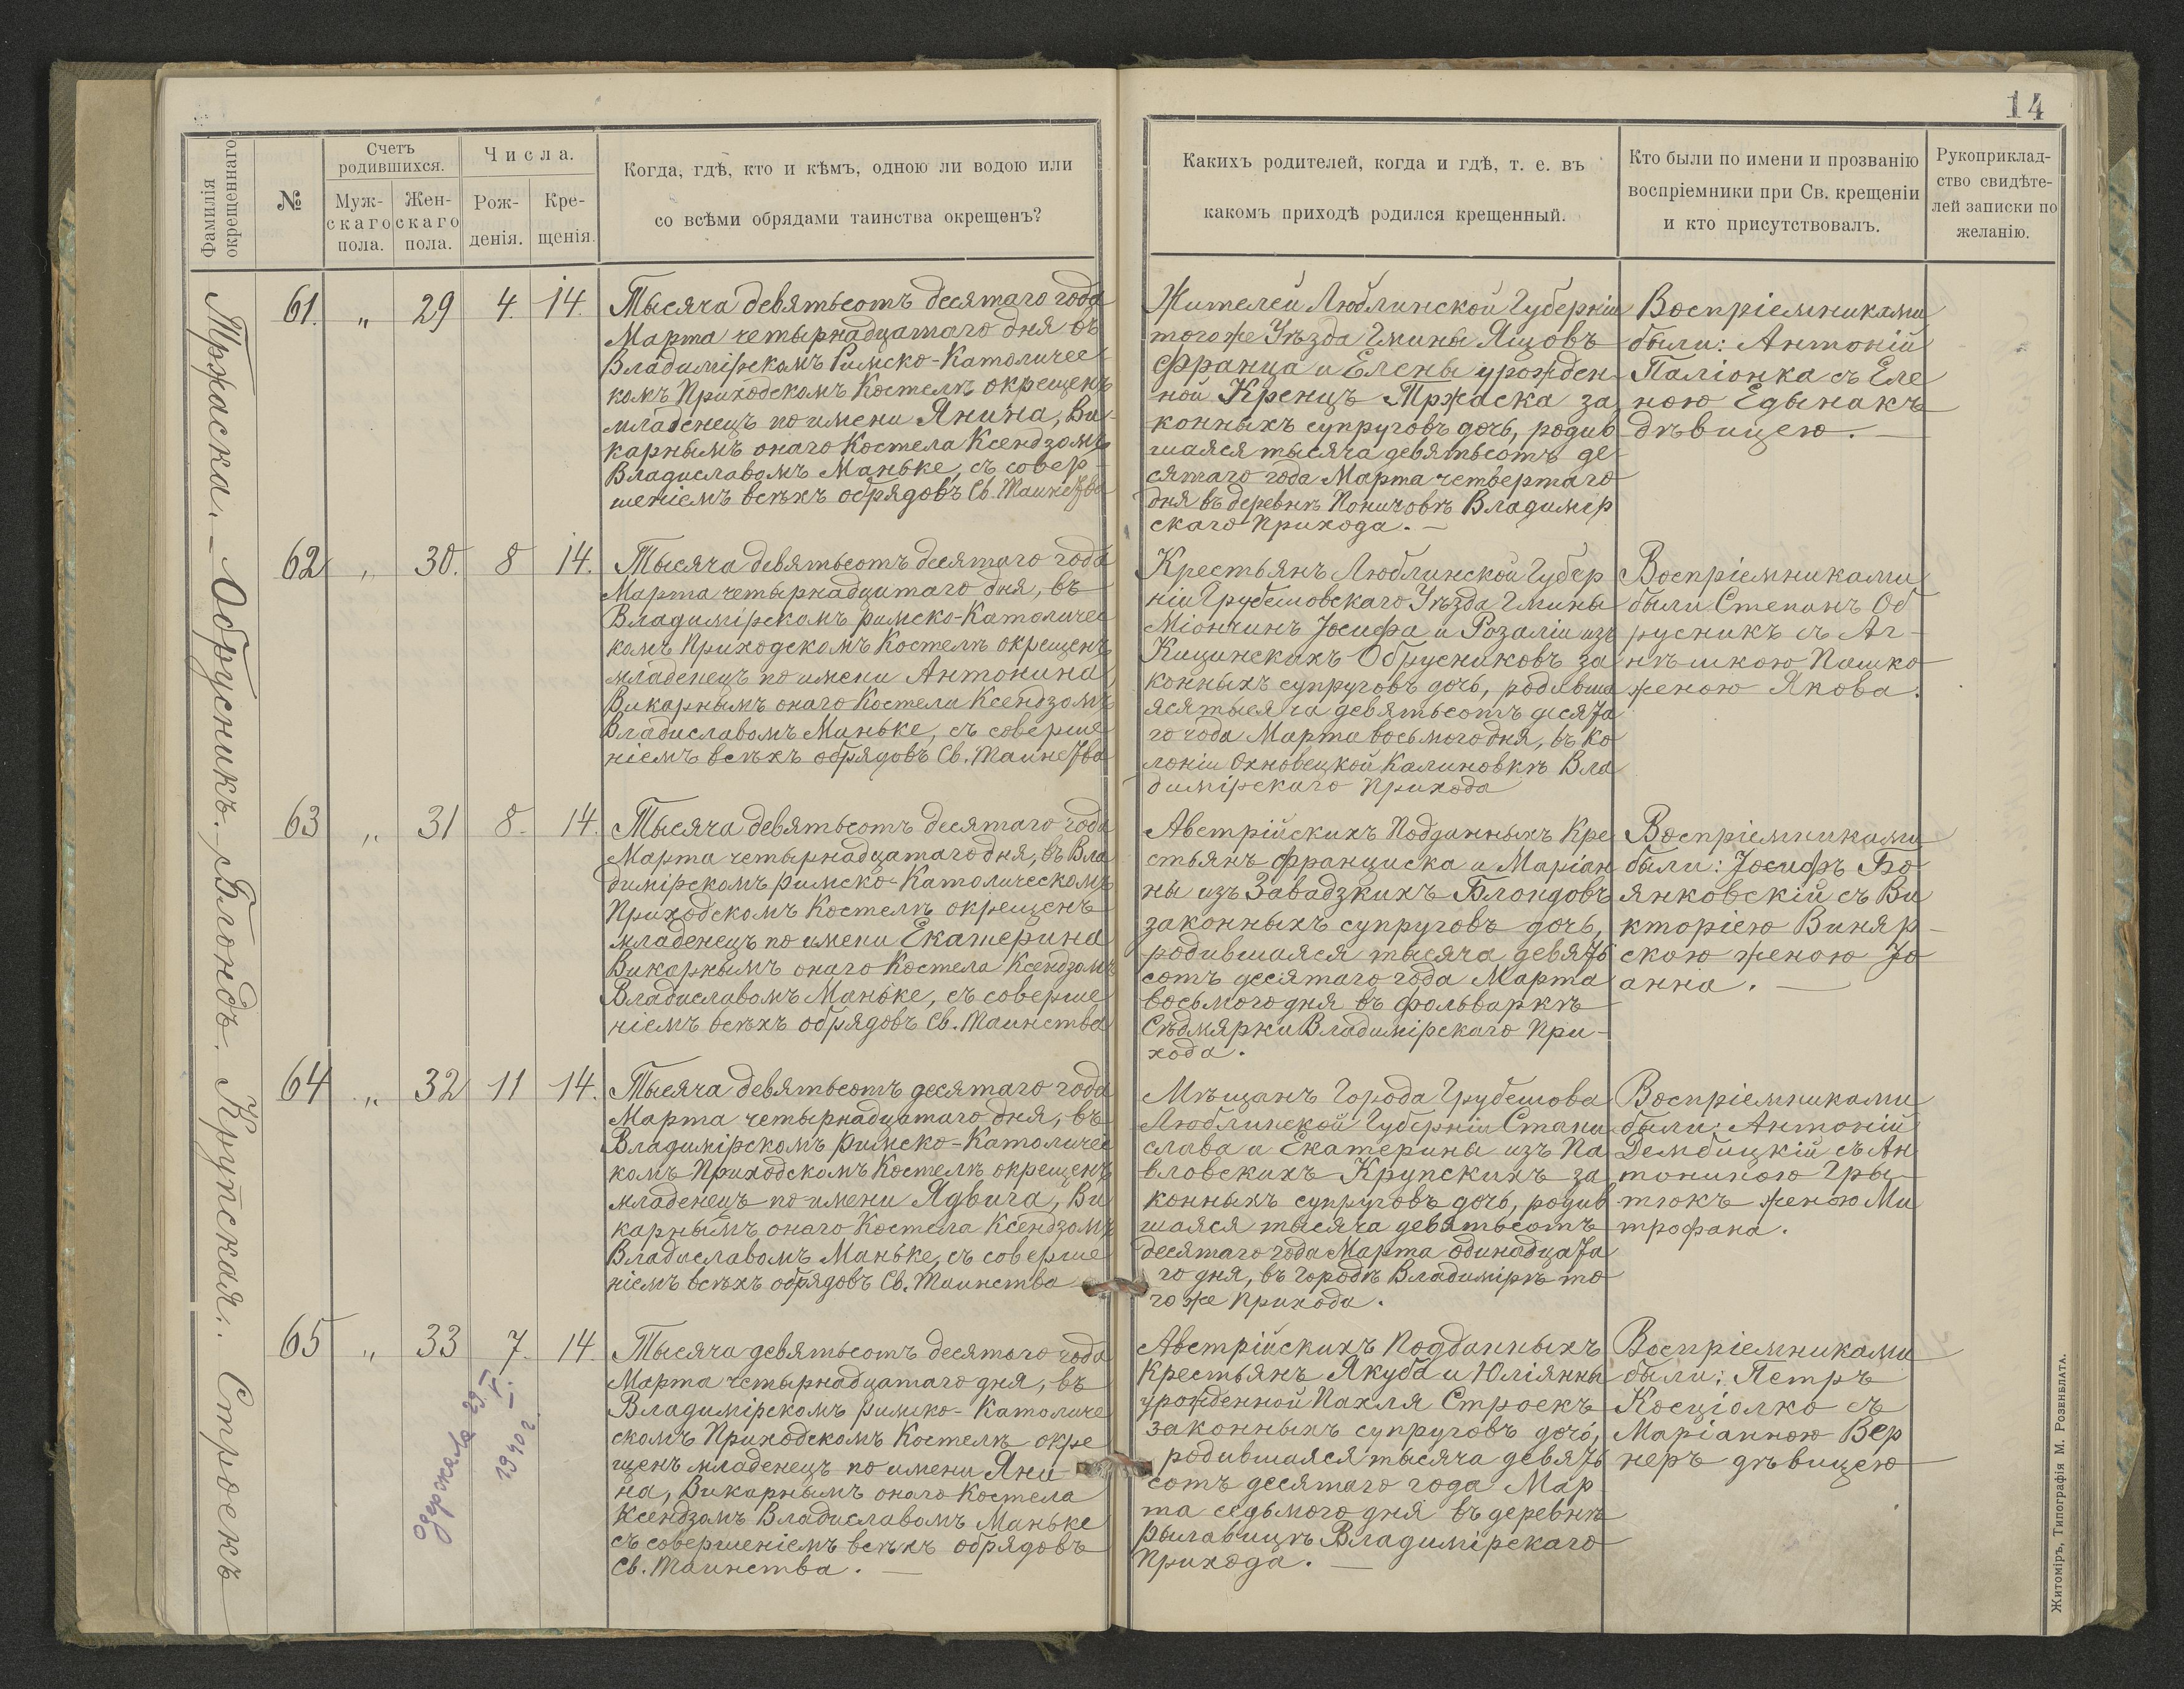 14
Фамилія окрещеннаго
№
Счетъ родившихся.
Мужскаго пола.
Женскаго пола.
Числа.
Рожденія.
Крещенія.
Когда, гдѣ, кто и кѣмъ, одною ли водою или
со всѣми обрядами таинства окрещенъ?
Какихъ родителей, когда и гдѣ, т. е. въ
какомъ приходѣ родился крещенный.
Кто были по имени и прозванію
воспріемники при Св. крещеніи
и кто присутствовалъ.
Рукоприклад-
ство свидѣте-
лей записки по
желанію.
Тржаска. – Обрусникъ. Блондъ. Крупская. Строекъ
61. „ 29 4. 14.
Тысяча девятьсотъ десятаго года
Марта четырнадцатаго дня въ
Владимірскомъ Римско-Католичес
комъ Приходскомъ Костелѣ окрещенъ
младенецъ по имени Янина, Ви-
карнымъ онаго Костела Ксендзомъ
Владиславомъ Маньке, съ совер-
шеніемъ всѣхъ обрядовъ Св. Таинства
Жителей Люблинской Губерніи
того же Уѣзда Гмины Ящовъ
Франца и Елены урожден
ной Кренцъ Тржаска за
конныхъ супруговъ дочь, родив
шаяся тысяча девятьсотъ де-
сятаго года Марта четвертаго
дня въ деревнѣ Поничовѣ Владимір
скаго Прихода. –
Воспріемниками
были: Антоній
Паліонка съ Еле
ною Едынакъ
дѣвицею. –
62 „ 30. 8 14.
Тысяча девятьсотъ десятаго года
Марта четырнадцатаго дня, въ
Владимірскомъ Римско-Католичес
комъ Приходскомъ Костелѣ окрещенъ
младенецъ по имени Антонина
Викарнымъ онаго Костела Ксендзомъ
Владиславомъ Маньке, съ соверше
ніемъ всѣхъ обрядовъ Св. Таинства
Крестьянъ Люблинской Губер
ніи Грубешовскаго Уѣзда Гмины
Міончинъ Іосифа и Розаліи изъ
Кицинскихъ Обрусниковъ за
конныхъ супруговъ дочь, родивша
яся тысяча девятьсотъ десята
го года Марта восьмого дня, въ Ко
лоніи Охновецкой Калиновкѣ Вла
димірскаго Прихода
Воспріемниками
были Степанъ Об
русникъ съ Аг-
нѣшкою Пашко
женою Якова.
63 „ 31 8. 14.
Тысяча девятьсотъ десятаго года
Марта четырнадцатаго дня, въ Вла
димірскомъ Римско-Католическомъ
Приходскомъ Костелѣ окрещенъ
младенецъ по имени Екатерина
Викарнымъ онаго Костела Ксендзомъ
Владиславомъ Маньке, съ соверше
ніемъ всѣхъ обрядовъ Св. Таинства
Австрійскихъ Подданныхъ Кре
стьянъ Франциска и Маріан
ны изъ Завадзкихъ Блондовъ
законныхъ супруговъ дочь,
родившаяся тысяча девять
сотъ десятаго года Марта
восьмого дня въ фольваркѣ
Сѣдмярки Владимірскаго При-
хода.
Воспріемниками
были: Іосифъ Бо
янковскій съ Ви
кторіею Виняр-
скою женою Іо
анна. –
64 „ 32 11 14.
Тысяча девятьсотъ десятаго года
Марта четырнадцатаго дня, въ
Владимірскомъ Римско-Католичес
комъ Приходскомъ Костелѣ окрещенъ
младенецъ по имени Ядвига, Ви
карнымъ онаго Костела Ксендзомъ
Владиславомъ Маньке, съ соверше
ніемъ всѣхъ обрядовъ Св. Таинства
Мѣщанъ Города Грубешова
Люблинской Губерніи Стани
слава и Екатерины изъ Па
вловскихъ Крупскихъ за
конныхъ супруговъ дочь, родив
шаяся тысяча девятьсотъ
десятаго года Марта одинадцата
го дня, въ Городѣ Владимірѣ то
го же Прихода.
Воспріемниками
были: Антоній
Дембицкій съ Ан
тониною Гры
тюкъ женою Ми
трофана.
65 „ 33 7. 14.
Тысяча девятьсотъ десятаго года
Марта четырнадцатаго дня, въ
Владимірскомъ Римско-Католиче
скомъ Приходскомъ Костелѣ окре
щенъ младенецъ по имени Яни
на, Викарнымъ онаго Костела
Ксендзомъ Владиславомъ Маньке
съ совершеніемъ всѣхъ обрядовъ
Св. Таинства. –
Австрійскихъ Подданныхъ
Крестьянъ Якуба и Юліянны
урожденной Пахля Строекъ
законныхъ супруговъ дочь,
родившаяся тысяча девять
сотъ десятаго года Мар
та седьмого дня въ деревнѣ
Рылавицѣ Владимірскаго
Прихода. –
Воспріемниками
были: Петръ
Косціолко съ
Маріанною Вер
неръ дѣвицею
Одержала 29
V. 1940 г.
Житоміръ, Типографія М. Розенблата.